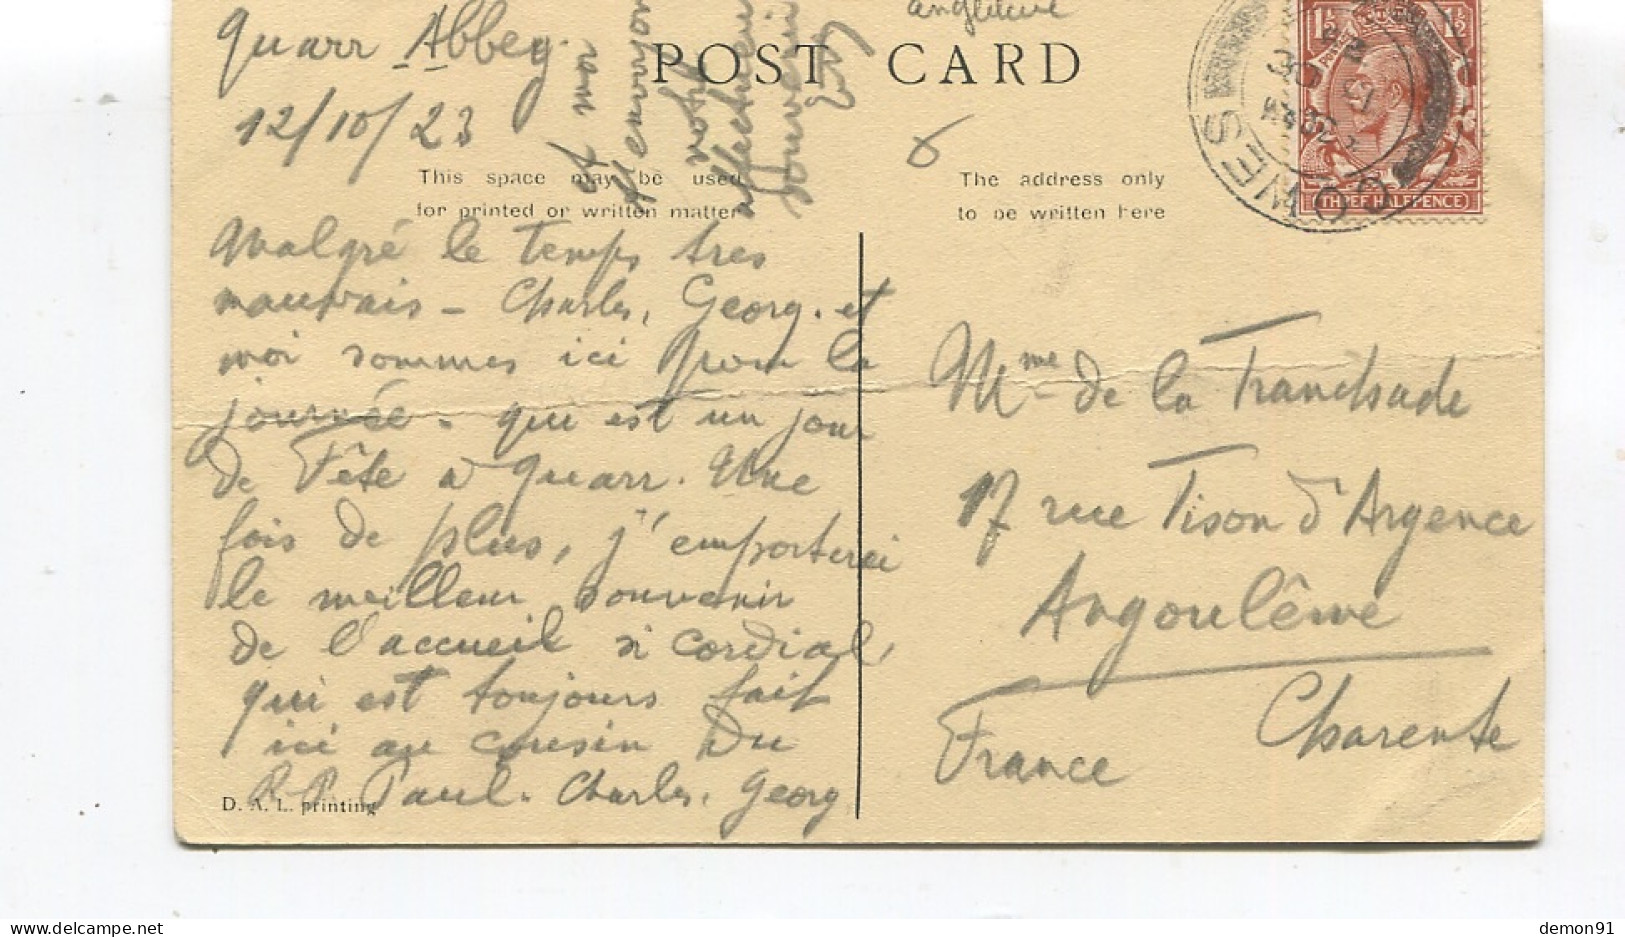 Quarr Abbey.
12/10/23
angleterre
POST CARD
This space may be used
for printed or written matter
The address only
to be written here
Malgré le temps tres
mauvais - Charles, Georg. et
moi sommes ici pour la
journée - qui est un jour
de Fête a Quarr. Une
fois de plus, j'emporterai
le meilleur souvenir
de l'accueil si cordial,
qui est toujours fait
ici au cousin Du
R. P. Paul. Charles, Georg
et moi
envoyons
votre
affectueux
souvenir
Mme de la Tranchade
17 rue Tison d'Argence
Angoulême
Charente
France
COWES
THREE HALFPENCE
1½ 1½
D. A. L. printing
demon91